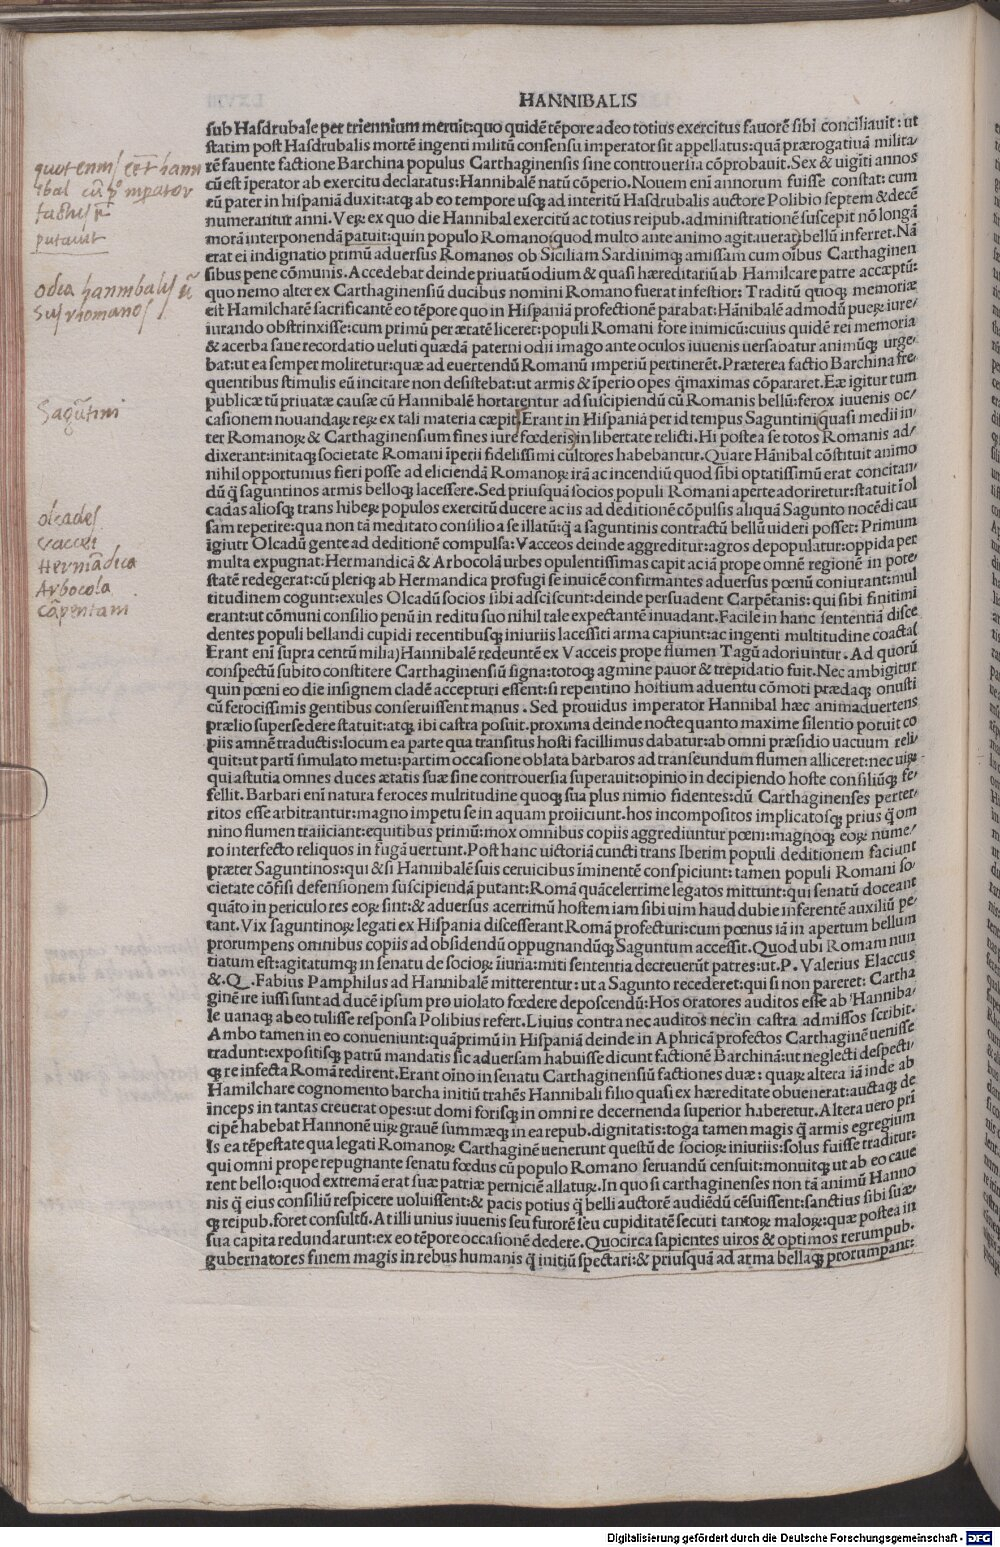 HANNIBALIS
sub Hasdrubale per triennium meruit:quo quidē tēpore adeo totius exercitus fauorē sibi conciliauit:ut
statim post Hasdrubalis mortē ingenti militū consensu imperator sit appellatus:quā prærogatiuā milita
rē fauente factione Barchina populus Carthaginensis sine controuersia cōprobauit.Sex & uigīti annos
cū est īperator ab exercitu declaratus:Hannibalē natū cōperio.Nouem enī annorum fuisse constat:cum
eū pater in hispaniā duxit:atqꝫ ab eo tempore usqꝫ ad interitū Hasdrubalis auctore Polibio septem & decē
numerantur anni.Veꝝ ex quo die Hannibal exercitū ac totius reipub.administrationē suscepit nō longā
morā interponendā patuit:quin populo Romano(quod multo ante animo agitauerat)bellū inferret.Nā
erat ei indignatio primū aduersus Romanos ob Siciliam Sardiniamqꝫ amissam cum oībus Carthaginen
sibus pene cōmunis.Accedebat deinde priuatū odium & quasi hæreditariū ab Hamilcare patre acceptū:
quo nemo alter ex Carthaginensiū ducibus nomini Romano fuerat infestior:Traditū quoqꝫ memoriæ
est Hamilcharē sacrificantē eo tēpore quo in Hispaniā profectionē parabat:Hānibalē admodū pueꝝ iure/
iurando obstrinxisse:cum primū per ætatē liceret:populi Romani fore inimicū:cuius quidē rei memoria
& acerba sane recordatio ueluti quædā paterni odii imago ante oculos iuuenis uersabatur animūqꝫ urge/
bat:ut ea semper moliretur:quæ ad euertendū Romanū imperiū pertinerēt.Præterea factio Barchina fre
quentibus stimulis eū incitare non desistebat:ut armis & īperio opes q̄maximas cōpararet.Eæ igitur tum
publicæ tū priuatæ causæ cū Hannibalē hortarentur ad suscipiendū cū Romanis bellū:ferox iuuenis oc/
casionem nouandaꝝ reꝝ ex tali materia cæpit.Erant in Hispaniā per id tempus Saguntini(quasi medii in/
ter Romanoꝝ & Carthaginensium fines iure fœderis)in libertate relicti.Hi postea se totos Romanis ad/
dixerant:initaqꝫ societate Romani īperii fidelissimi cultores habebantur.Quare Hānibal cōstituit animo
nihil opportunius fieri posse ad eliciendā Romanoꝝ irā ac incendiū quod sibi optatissimū erat concitan/
dū q̄ saguntinos armis belloqꝫ lacessere.Sed priusquā socios populi Romani aperte adoriretur:statuit ī ol
cadas aliosqꝫ trans hibeꝝ populos exercitū ducere ac iis ad deditionē cōpulsis aliquā Sagunto nocēdi cau
sam reperire:qua non tā meditato consilio a se illatū:q̄ a saguntinis contractū bellū uideri posset:Primum
īgiutr Olcadū gente ad deditionē compulsa:Vacceos deinde aggreditur:agros depopulatur:oppida per
multa expugnat:Hermandicā & Arbocolā urbes opulentissimas capit ac iā prope omnē regionē in pote/
statē redegerat:cū pleriqꝫ ab Hermandica profugi se inuicē confirmantes aduersus pœnū coniurant:mul
titudinem cogunt:exules Olcadū socios sibi adsciscunt:deinde persuadent Carpētanis:qui sibi finitimi
erant:ut cōmuni consilio penū in reditu suo nihil tale expectantē inuadant.Facile in hanc sententiā disce
dentes populi bellandi cupidi recentibusqꝫ iniuriis lacessiti arma capiunt:ac ingenti multitudine coacta(
Erant enī supra centū milia)Hannibalē redeuntē ex Vacceis prope flumen Tagū adoriuntur.Ad quorū
conspectū subito constitere Carthaginensiū signa:totoqꝫ agmine pauor & trepidatio fuit.Nec ambigitur
quin pœni eo die insignem cladē accepturi essent:si repentino hostium aduentu cōmoti prædaqꝫ onusti
cū ferocissimis gentibus conseruissent manus.Sed prouidus imperator Hannibal hæc animaduertens
prælio supersedere statuit:atqꝫ ibi castra posuit.proxima deinde nocte quanto maxime silentio potuit co
piis amnē traductis:locum ea parte qua transitus hosti facillimus dabatur:ab omni præsidio uacuum reli/
quit:ut partī simulato metu:partim occasione oblata barbaros ad transeundum flumen alliceret:nec uiꝝ
qui astutia omnes duces ætatis suæ sine controuersia superauit:opinio in decipiendo hoste consiliūqꝫ fe/
fellit.Barbari enī natura feroces multitudine quoqꝫ sua plus nimio fidentes:dū Carthaginenses perter/
ritos esse arbitrantur:magno impetu se in aquam proiiciunt.hos incompositos implicatosqꝫ prius q̄ om
nino flumen traiiciant:equitibus primū:mox omnibus copiis aggrediuntur pœni:magnoqꝫ eoꝝ nume/
ro interfecto reliquos in fugā uertunt.Post hanc uictoriā cuncti trans Iberim populi deditionem faciunt
præter Saguntinos:qui & si Hannibalē suis ceruicibus īminentē conspiciunt:tamen populi Romani so/
cietate cōfisi defensionem suscipiendā putant:Romā quācelerrime legatos mittunt:qui senatū doceant
quāto in periculo res eoꝝ sint:& aduersus acerrimū hostem iam sibi uim haud dubie inferentē auxiliū pe/
tant.Vix saguntinoꝝ legati ex Hispania discesserant Romā profecturi:cum pœnus iā in apertum bellum
prorumpens omnibus copiis ad obsidendū oppugnandūqꝫ Saguntum accessit.Quod ubi Romam nun
tiatum est:agitatumqꝫ in senatu de socioꝝ īiuria:miti sententia decreuerūt patres:ut.P.Valerius Elaccus
&.Q.Fabius Pamphilus ad Hannibalē mitterentur:ut a Sagunto recederet:qui si non pareret:Cartha
ginē ire iussi sunt ad ducē ipsum pro uiolato fœdere deposcendū:Hos oratores auditos esse ab Hanniba/
le uanaqꝫ ab eo tulisse responsa Polibius refert.Liuius contra nec auditos nec in castra admissos scribit.
Ambo tamen in eo conueniunt:quāprimū in Hispaniā deinde in Aphricā profectos Carthaginē uenisse
tradunt:expositisqꝫ patrū mandatis sic aduersam habuisse dicunt factionē Barchinā:ut neglecti despecti/
qꝫ re infecta Romā redirent.Erant oīno in senatu Carthaginensiū factiones duæ:quaꝝ altera iā inde ab
Hamilchare cognomento barcha initiū trahēs Hannibali filio quasi ex hæreditate obuenerat:auctaqꝫ de
inceps in tantas creuerat opes:ut domi forisqꝫ in omni re decernenda superior haberetur.Altera uero pri
cipē habebat Hannonē uiꝝ grauē summæqꝫ in ea repub.dignitatis:toga tamen magis q̄ armis egregium
Is ea tēpestate qua legati Romanoꝝ Carthaginē uenerunt questū de socioꝝ iniuriis:solus fuisse traditur:
qui omni prope repugnante senatu fœdus cū populo Romano seruandū censuit:monuitqꝫ ut ab eo caue
rent bello:quod extremā erat suæ patriæ perniciē allatuꝝ.In quo si carthaginenses non tā animū Hanno
nis q̄ eius consiliū respicere uoluissent:& pacis potius q̄ belli auctorē audiēdū cēsuissent:sanctius sibi suæ/
qꝫ reipub.foret consultū.At illi unius iuuenis seu furorē seu cupiditatē secuti tantoꝝ maloꝝ:quæ postea in
sua capita redundarunt:ex eo tēpore occasionē dedere.Quocirca sapientes uiros & optimos rerumpub.
gubernatores finem magis in rebus humanis q̄ initiū spectari:& priusquā ad arma bellaqꝫ prorumpant:
putauit
odia hannibalis
Sagūtini
olcades
vaccei
Hermādica
Arbocola
Cāpentani
Digitalisierung gefördert durch die Deutsche Forschungsgemeinschaft - DFG